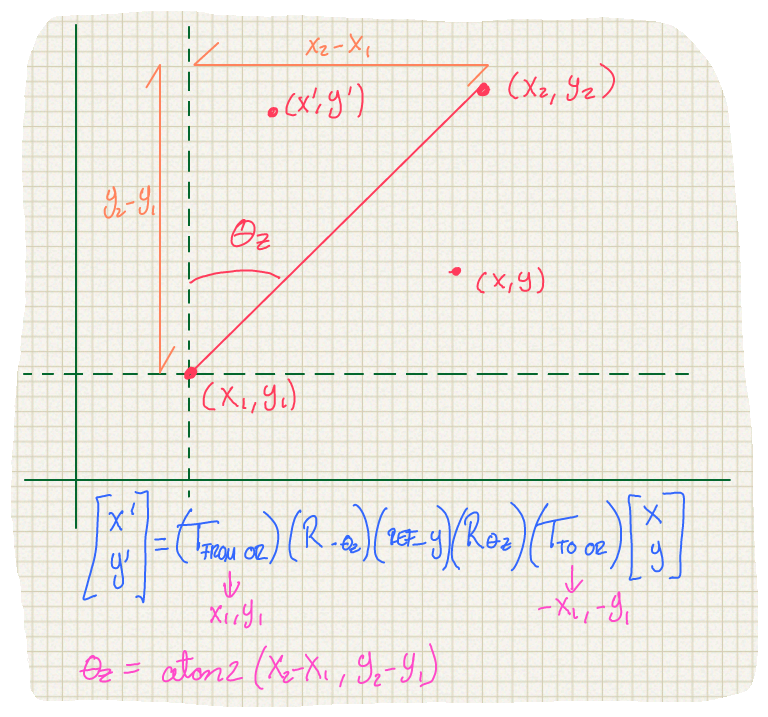 x₂-x₁
(x',y')
(x₂, y₂)
y₂-y₁
θz
(x,y)
(x₁, y₁)
[x' y'] = (T FROM OR)(R -θz)(REF-y)(R θz)(T TO OR)[x y]
x₁,y₁
-x₁,-y₁
θz = atan2(x₂-x₁, y₂-y₁)